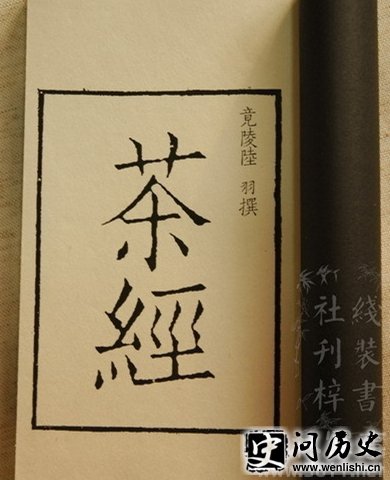 綫裝書
社刊梓
竟陵陸 羽撰
茶經
史 问历史
www.wenlishi.cn